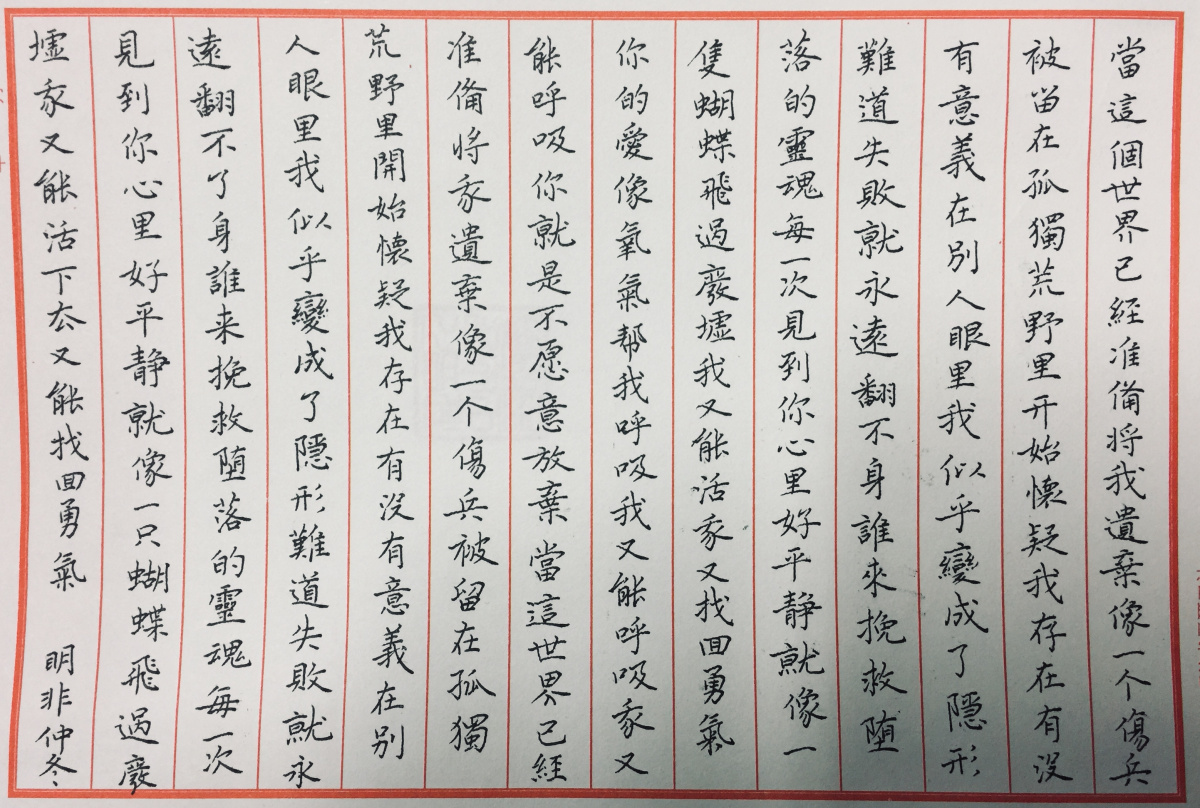 當這個世界已經准備將我遺棄像一个傷兵
被留在孤獨荒野里开始懷疑我存在有沒
有意義在別人眼里我似乎變成了隱形
難道失敗就永遠翻不身誰來挽救墮
落的靈魂每一次見到你心里好平静就像一
隻蝴蝶飛過廢墟我又能活家又找回勇氣
你的愛像氧氣帮我呼吸我又能呼吸家又
能呼吸你就是不愿意放棄當這世界已經
准備將家遺棄像一个傷兵被留在孤獨
荒野里開始懷疑我存在有没有意義在别
人眼里我似乎變成了隱形難道失敗就永
遠翻不了身誰来挽救墮落的靈魂每一次
見到你心里好平静就像一只蝴蝶飛過廢
墟家又能活下去又能找回勇氣 明非仲冬